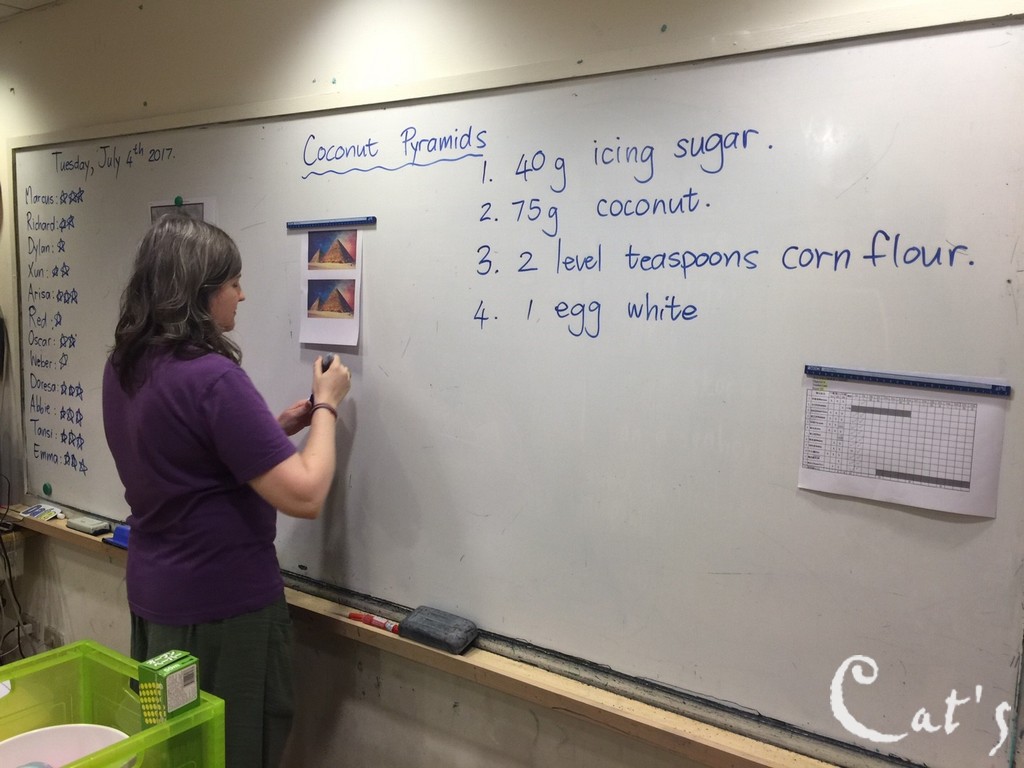 Tuesday, July 4th 2017.
Marcus:
Richard:
Dylan:
Xun:
Arisa:
Red:
Oscar:
Weber:
Doresa:
Abbie:
Tansi:
Emma:
Coconut Pyramids
1. 40g icing sugar.
2. 75g coconut.
3. 2 level teaspoons corn flour.
4. 1 egg white
Cat's